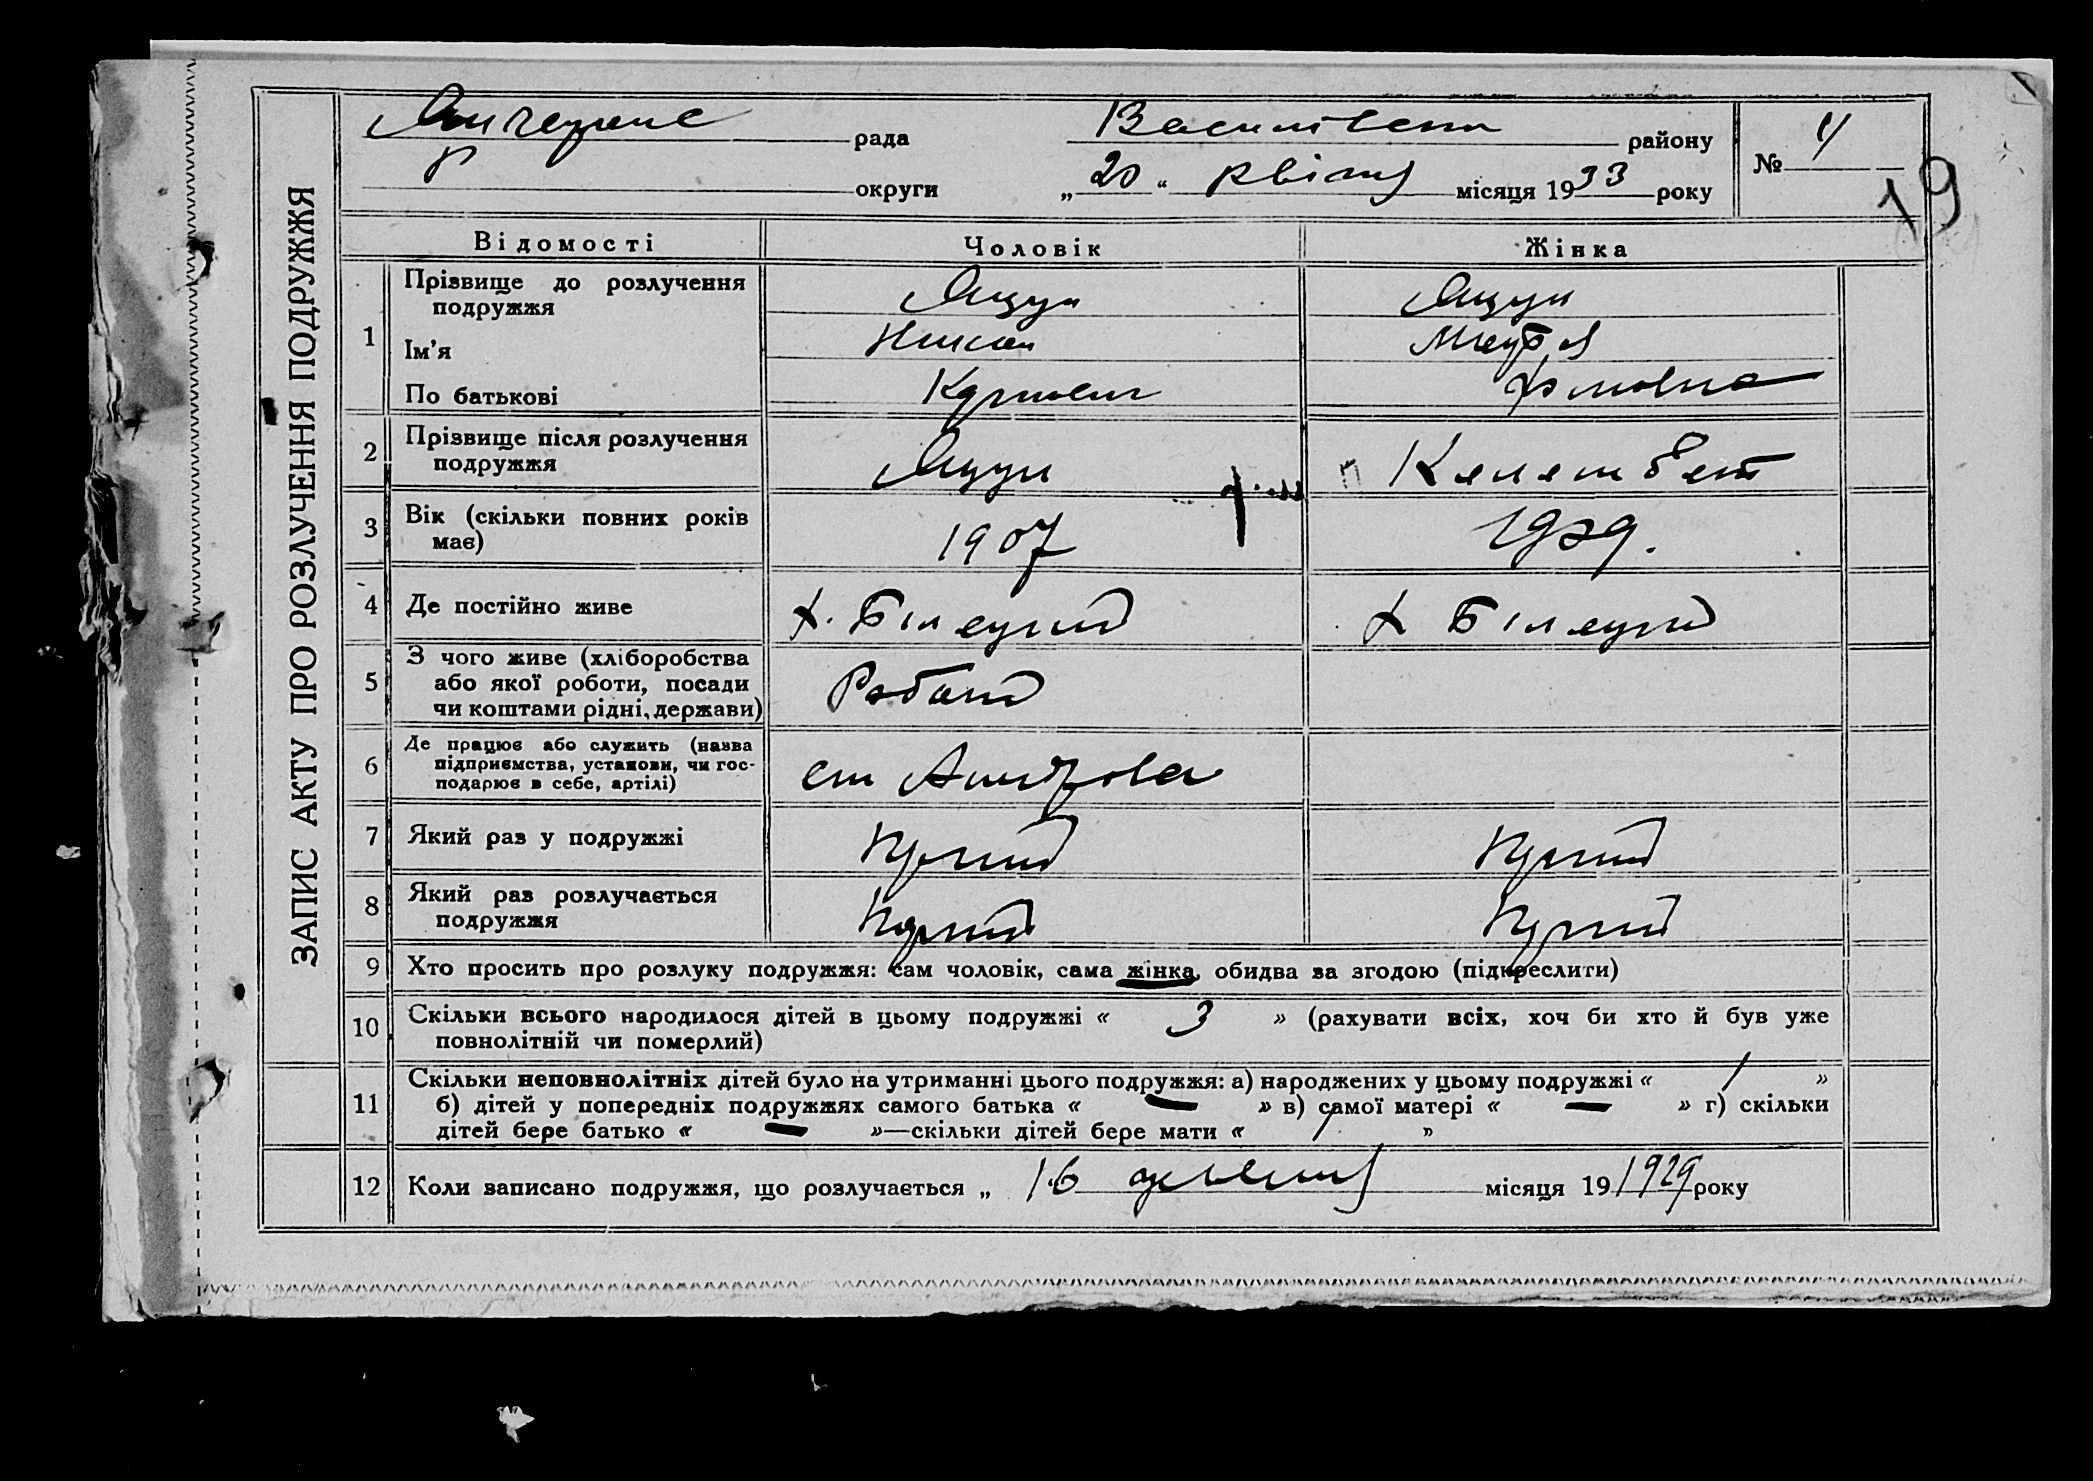 ЗАПИС АКТУ ПРО РОЗЛУЧЕННЯ ПОДРУЖЖЯ
рада
районy
№ 4
округи
„ 20 “ квітня місяця 1933 року
19
Відомості Чоловік Жінка
1 Прізвище до розлучення Ящун Ящун
подружжя
Ім'я
По батькові
2 Прізвище після розлучення Ящун
подружжя
3 Вік (скільки повних років 1907
має)
4 Де постійно живе х. Білецький х Білецький
5 З чого живе (хліборобства
або якої роботи, посади
чи коштами рідні, держави)
6 Де працює або служить (назва
підприємства, установи, чи гос-
подарює в себе, артілі)
7 Який раз у подружжі Перший Перший
8 Який раз розлучається Перший Перший
подружжя
9 Хто просить про розлуку подружжя: сам чоловік, сама жінка, обидва за згодою (підкреслити)
10 Скільки всього народилося дітей в цьому подружжі « 3 » (рахувати всіх, хоч би хто й був уже
повнолітній чи померлий)
11 Скільки неповнолітніх дітей було на утриманні цього подружжя: а) народжених у цьому подружжі « 1 »
б) дітей у попередніх подружжях самого батька « — » в) самої матері « — » г) скільки
дітей бере батько « — »—скільки дітей бере мати « 1 »
12 Коли записано подружжя, що розлучається „ 16 місяця 19 1929 року